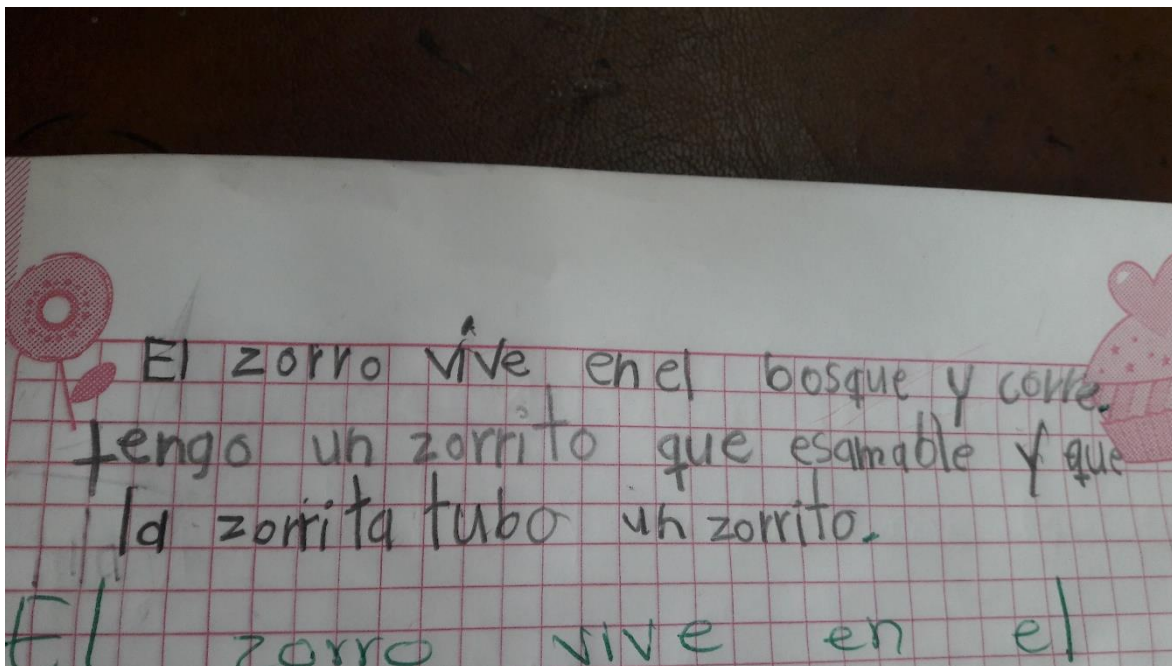 El zorro vive en el bosque y corre.
tengo un zorrito que esamable y que
la zorrita tubo un zorrito.
El zorro vive en el